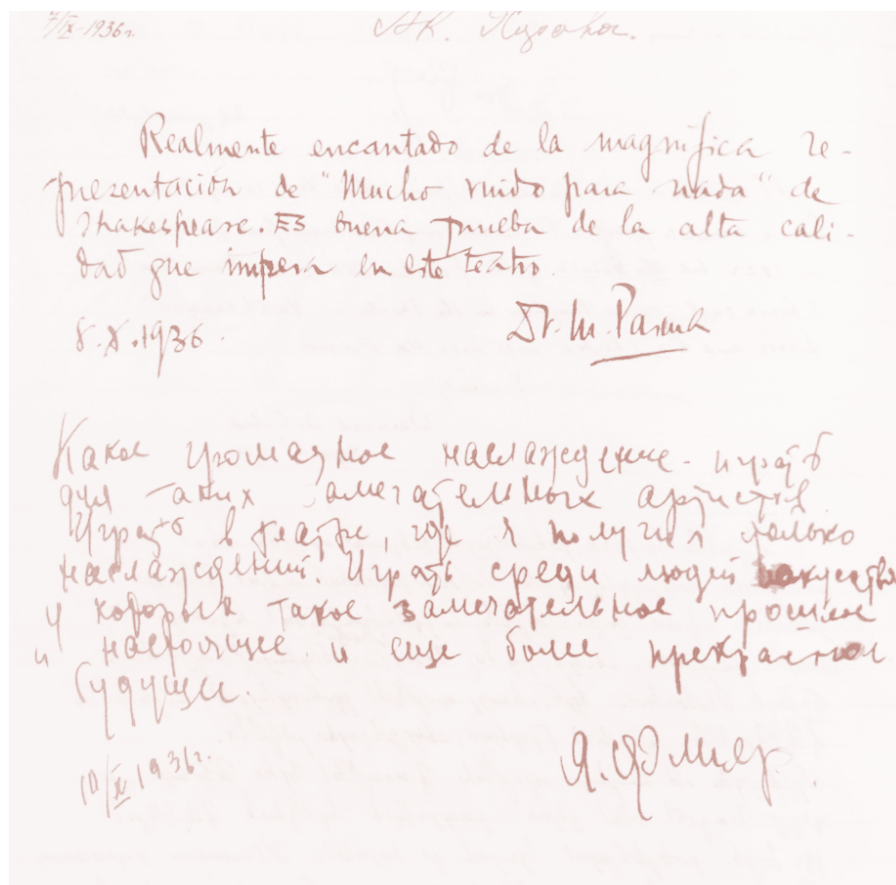 7/IX-1936г.
Realmente encantado de la magnífica re-
presentación de "Mucho ruido para nada" de
Shakespeare. Es buena prueba de la alta cali-
dad que impera en este teatro.
8.X.1936.
Dr. M.
Какое громадное наслаждение - играть
для таких замечательных артистов
Играть в театре, где я получил только
наслаждений. Играть среди людей искусства
у которых такое замечательное прошлое
и настоящее и еще более прекрасное
будущее.
10/X 1936г.
Я. Флиер.